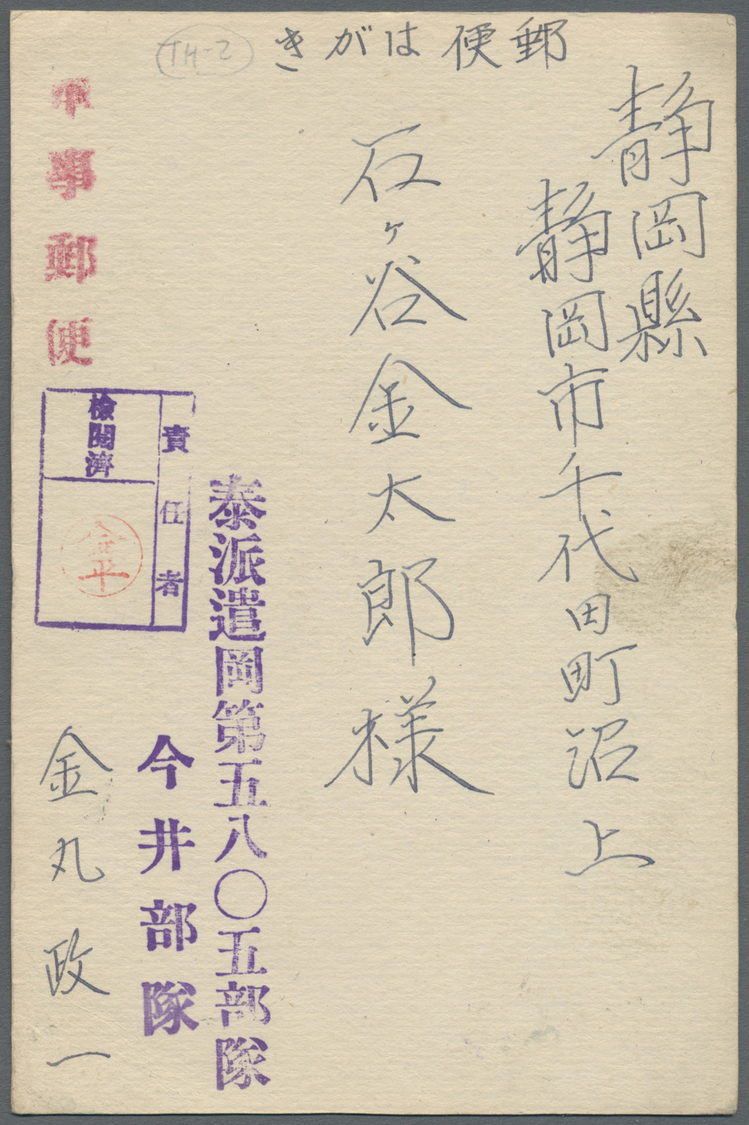 きがは便郵
TH-2
静岡縣
静岡市千代田町沼上
石ヶ谷金太郎様
軍事郵便
責任者
検閲濟
金平
泰派遣岡第五八〇五部隊
今井部隊
金丸政一